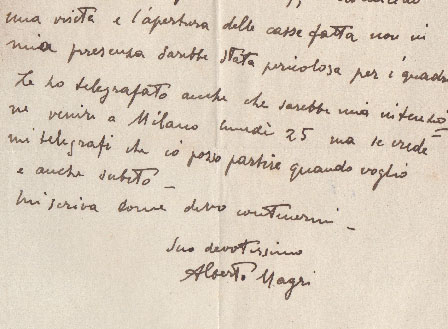 una visita e l'apertura delle casse fatta non in
mia presenza sarebbe stata pericolosa per i quadri
Le ho telegrafato anche che sarebbe mia intenzio=
ne venire a Milano lunedì 25 ma se crede
mi telegrafi che io posso partire quando voglio
e anche subito —
Mi scriva come devo contenermi —
Suo devotissimo
Alberto Magri